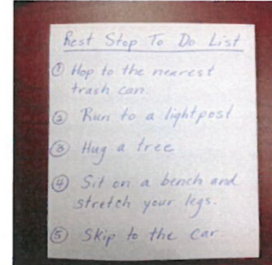 Rest Stop To Do List
① Hop to the nearest
trash can.
② Run to a lightpost
③ Hug a tree
④ Sit on a bench and
stretch your legs.
⑤ Skip to the car